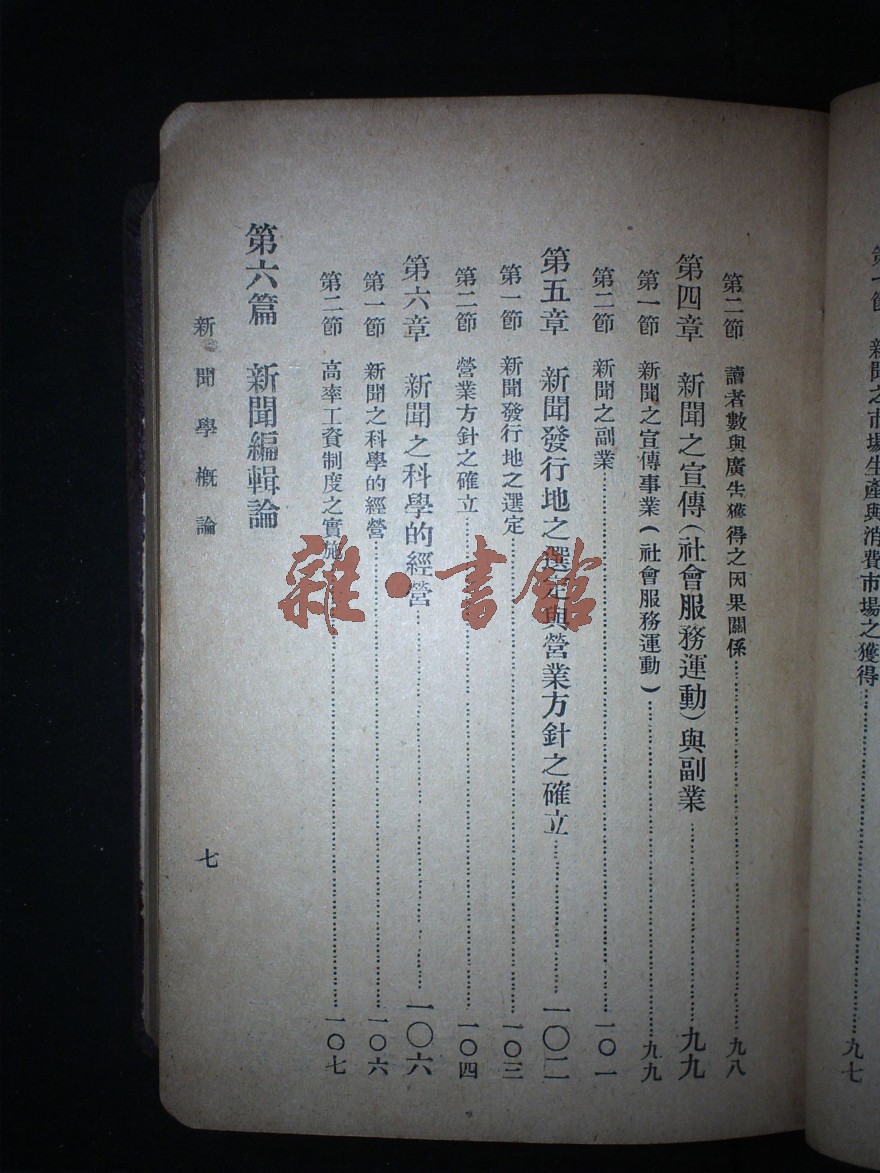 第一節　新聞之市場生產與消費市場之獲得……九七
第二節　讀者數與廣告獲得之因果關係……九八
第四章　新聞之宣傳(社會服務運動)與副業……九九
第一節　新聞之宣傳事業(社會服務運動)……九九
第二節　新聞之副業……一〇一
第五章　新聞發行地之選定與營業方針之確立……一〇二
第一節　新聞發行地之選定……一〇三
第二節　營業方針之確立……一〇四
第六章　新聞之科學的經營……一〇六
第一節　新聞之科學的經營……一〇六
第二節　高率工資制度之實施……一〇七
第六篇　新聞編輯論
新聞學概論　七
雜·書館